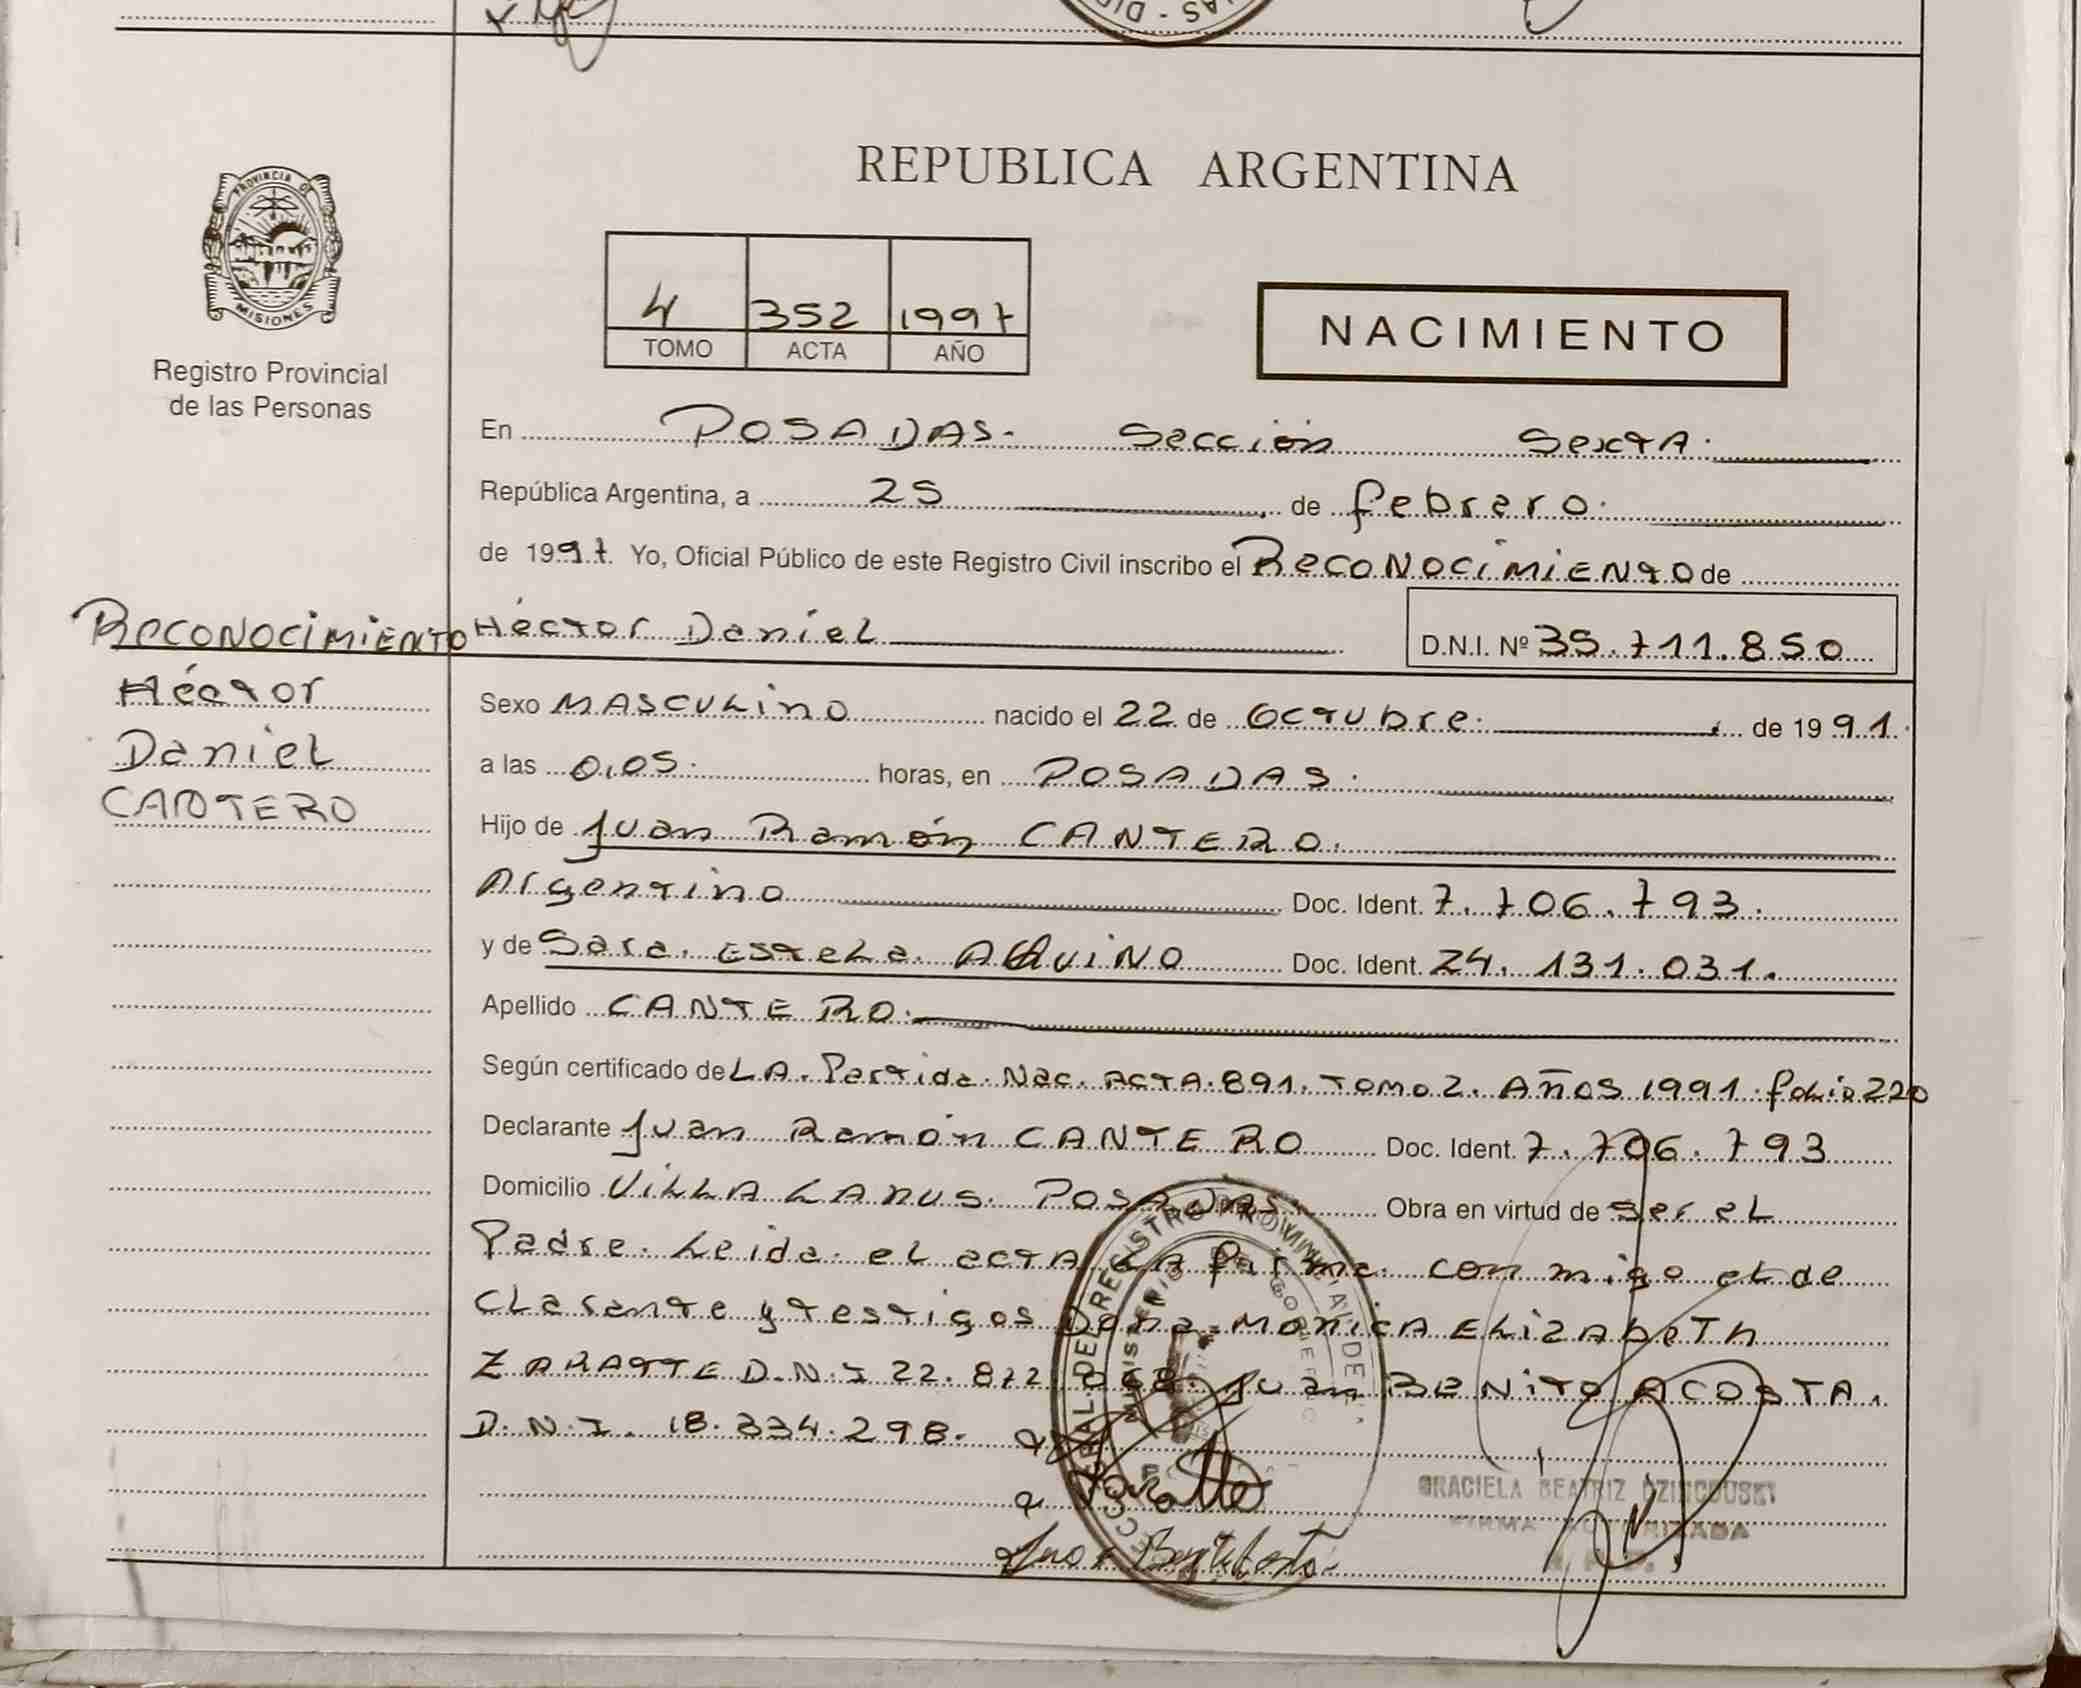 REPUBLICA ARGENTINA
PROVINCIA DE
MISIONES
Registro Provincial
de las Personas
4 352 1997
TOMO ACTA AÑO
NACIMIENTO
En POSADAS. Sección Sexta.
República Argentina, a 25 de febrero.
de 1997. Yo, Oficial Público de este Registro Civil inscribo el Reconocimiento de
Héctor Daniel D.N.I. Nº 35.711.850
Reconocimiento
Héctor
Daniel
CANTERO
Sexo MASCULINO nacido el 22 de Octubre. de 1991.
a las 0,05. horas, en POSADAS.
Hijo de Juan Ramón CANTERO.
Argentino Doc. Ident. 7.706.793.
y de Sara Estela AQUINO Doc. Ident. 24.131.031.
Apellido CANTERO.
Según certificado de LA Partida Nac. ACTA 891. TOMO 2. AÑOS 1991 folio 220
Declarante Juan Ramón CANTERO Doc. Ident. 7.706.793
Domicilio Villa Lanus. POSADAS. Obra en virtud de ser el
Padre. Leida el acta LA firma con migo el de
clarante y testigos Doña MONICA ELIZABETH
ZARATTE D.N.I 22.872.068. Juan BENITO ACOSTA.
D.N.I. 18.334.298.
Zaratte
GRACIELA BEATRIZ
FIRMA AUTORIZADA
REGISTRO PROVINCIAL DE
MINISTERIO DE GOBIERNO